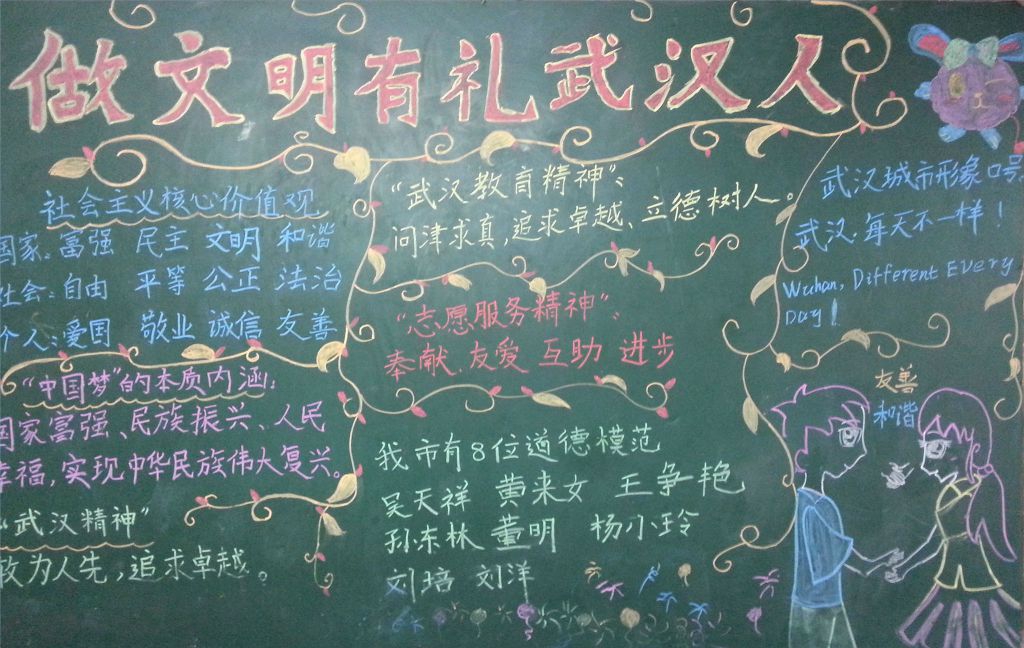 做文明有礼武汉人
社会主义核心价值观
国家:富强 民主 文明 和谐
社会:自由 平等 公正 法治
个人:爱国 敬业 诚信 友善
“中国梦”的本质内涵:
国家富强、民族振兴、人民
幸福,实现中华民族伟大复兴。
“武汉精神”
敢为人先,追求卓越。
“武汉教育精神”:
问津求真,追求卓越、立德树人。
“志愿服务精神”:
奉献.友爱 互助 进步
我市有8位道德模范
吴天祥 黄来女 王争艳
孙东林 董明 杨小玲
刘培 刘洋
武汉城市形象口号
武汉,每天不一样!
Wuhan, Different Every
Day!
友善
和谐